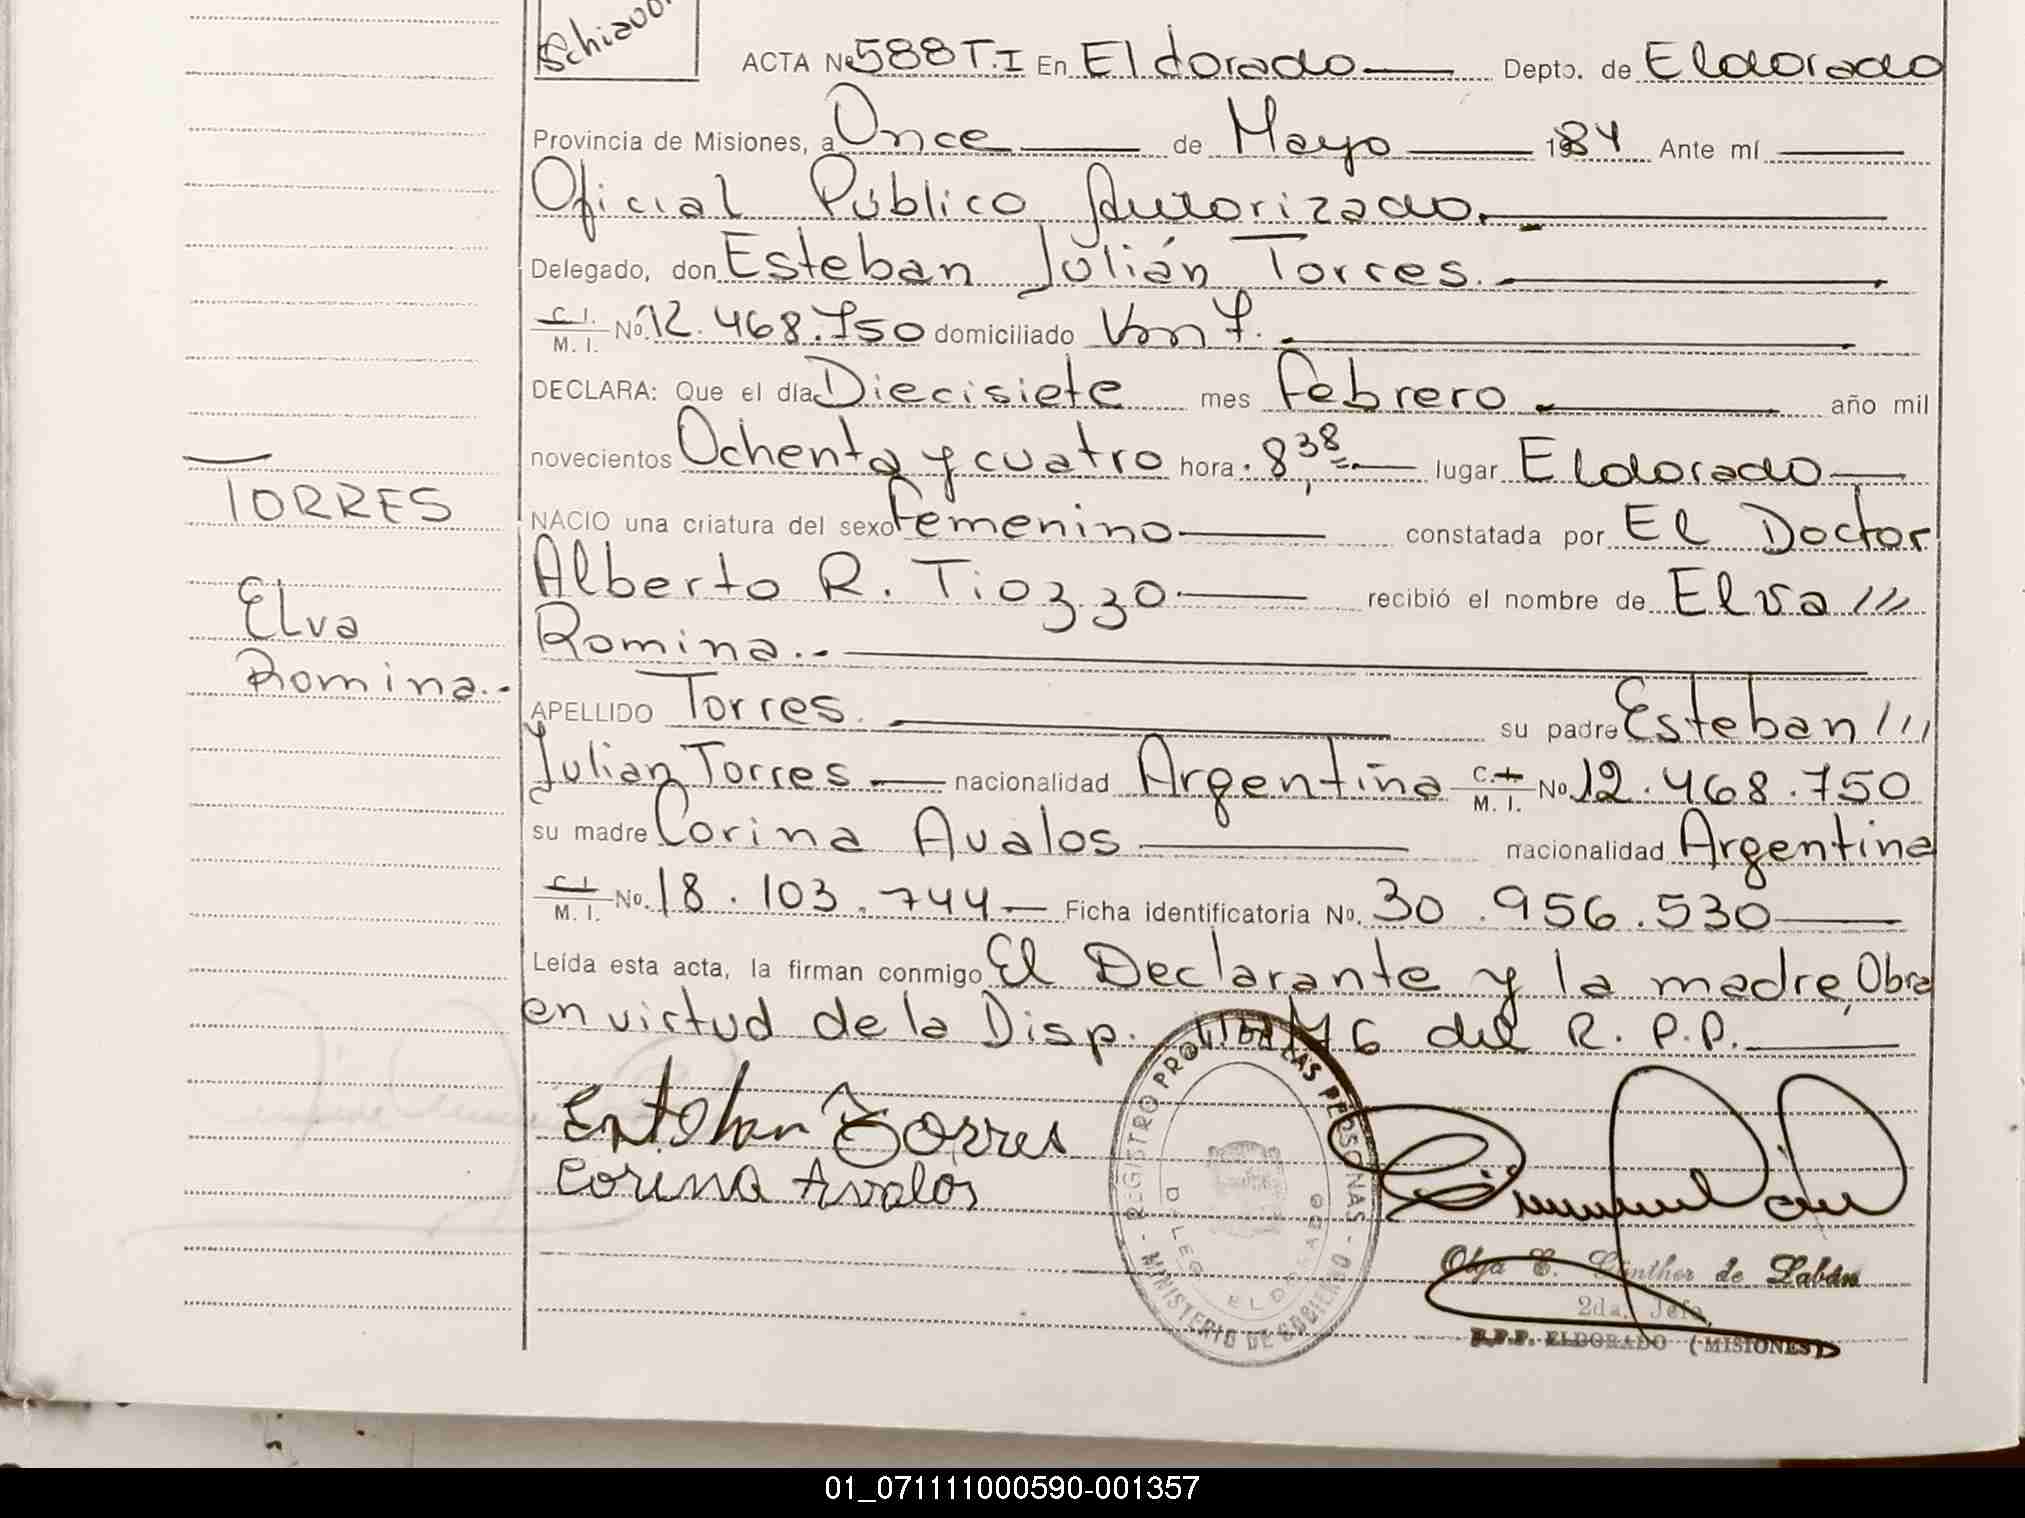 Schiavon
ACTA Nº 588 T.I En Eldorado Depto. de Eldorado
Provincia de Misiones, a Once de Mayo 1984 Ante mí
Oficial Público Autorizado.
Delegado, don Esteban Julián Torres.
C.I. M. I. No. 12.468.750 domiciliado
DECLARA: Que el día Diecisiete mes Febrero año mil
novecientos Ochenta y cuatro hora 8,38 lugar Eldorado
NACIO una criatura del sexo Femenino constatada por El Doctor
Alberto R. Tiozzo recibió el nombre de Elva ///
TORRES
Elva
Romina.-
Romina.-
APELLIDO Torres. su padre Esteban ///
Julian Torres nacionalidad Argentina C.I. M. I. No. 12.468.750
su madre Corina Avalos nacionalidad Argentina
C.I. M. I. No. 18.103.744 Ficha identificatoria No. 30.956.530
Leída esta acta, la firman conmigo El Declarante y la madre, Obra
en virtud de la Disp. del R.P.P.
Esteban Torres
Corina Avalos
REGISTRO PROV. DE LAS PERSONAS - MINISTERIO DE GOBIERNO -
DELEG. ELDORADO
Olga E. Günther de Labán
2da. Jefe
R.P.P. ELDORADO (MISIONES)
01_071111000590-001357